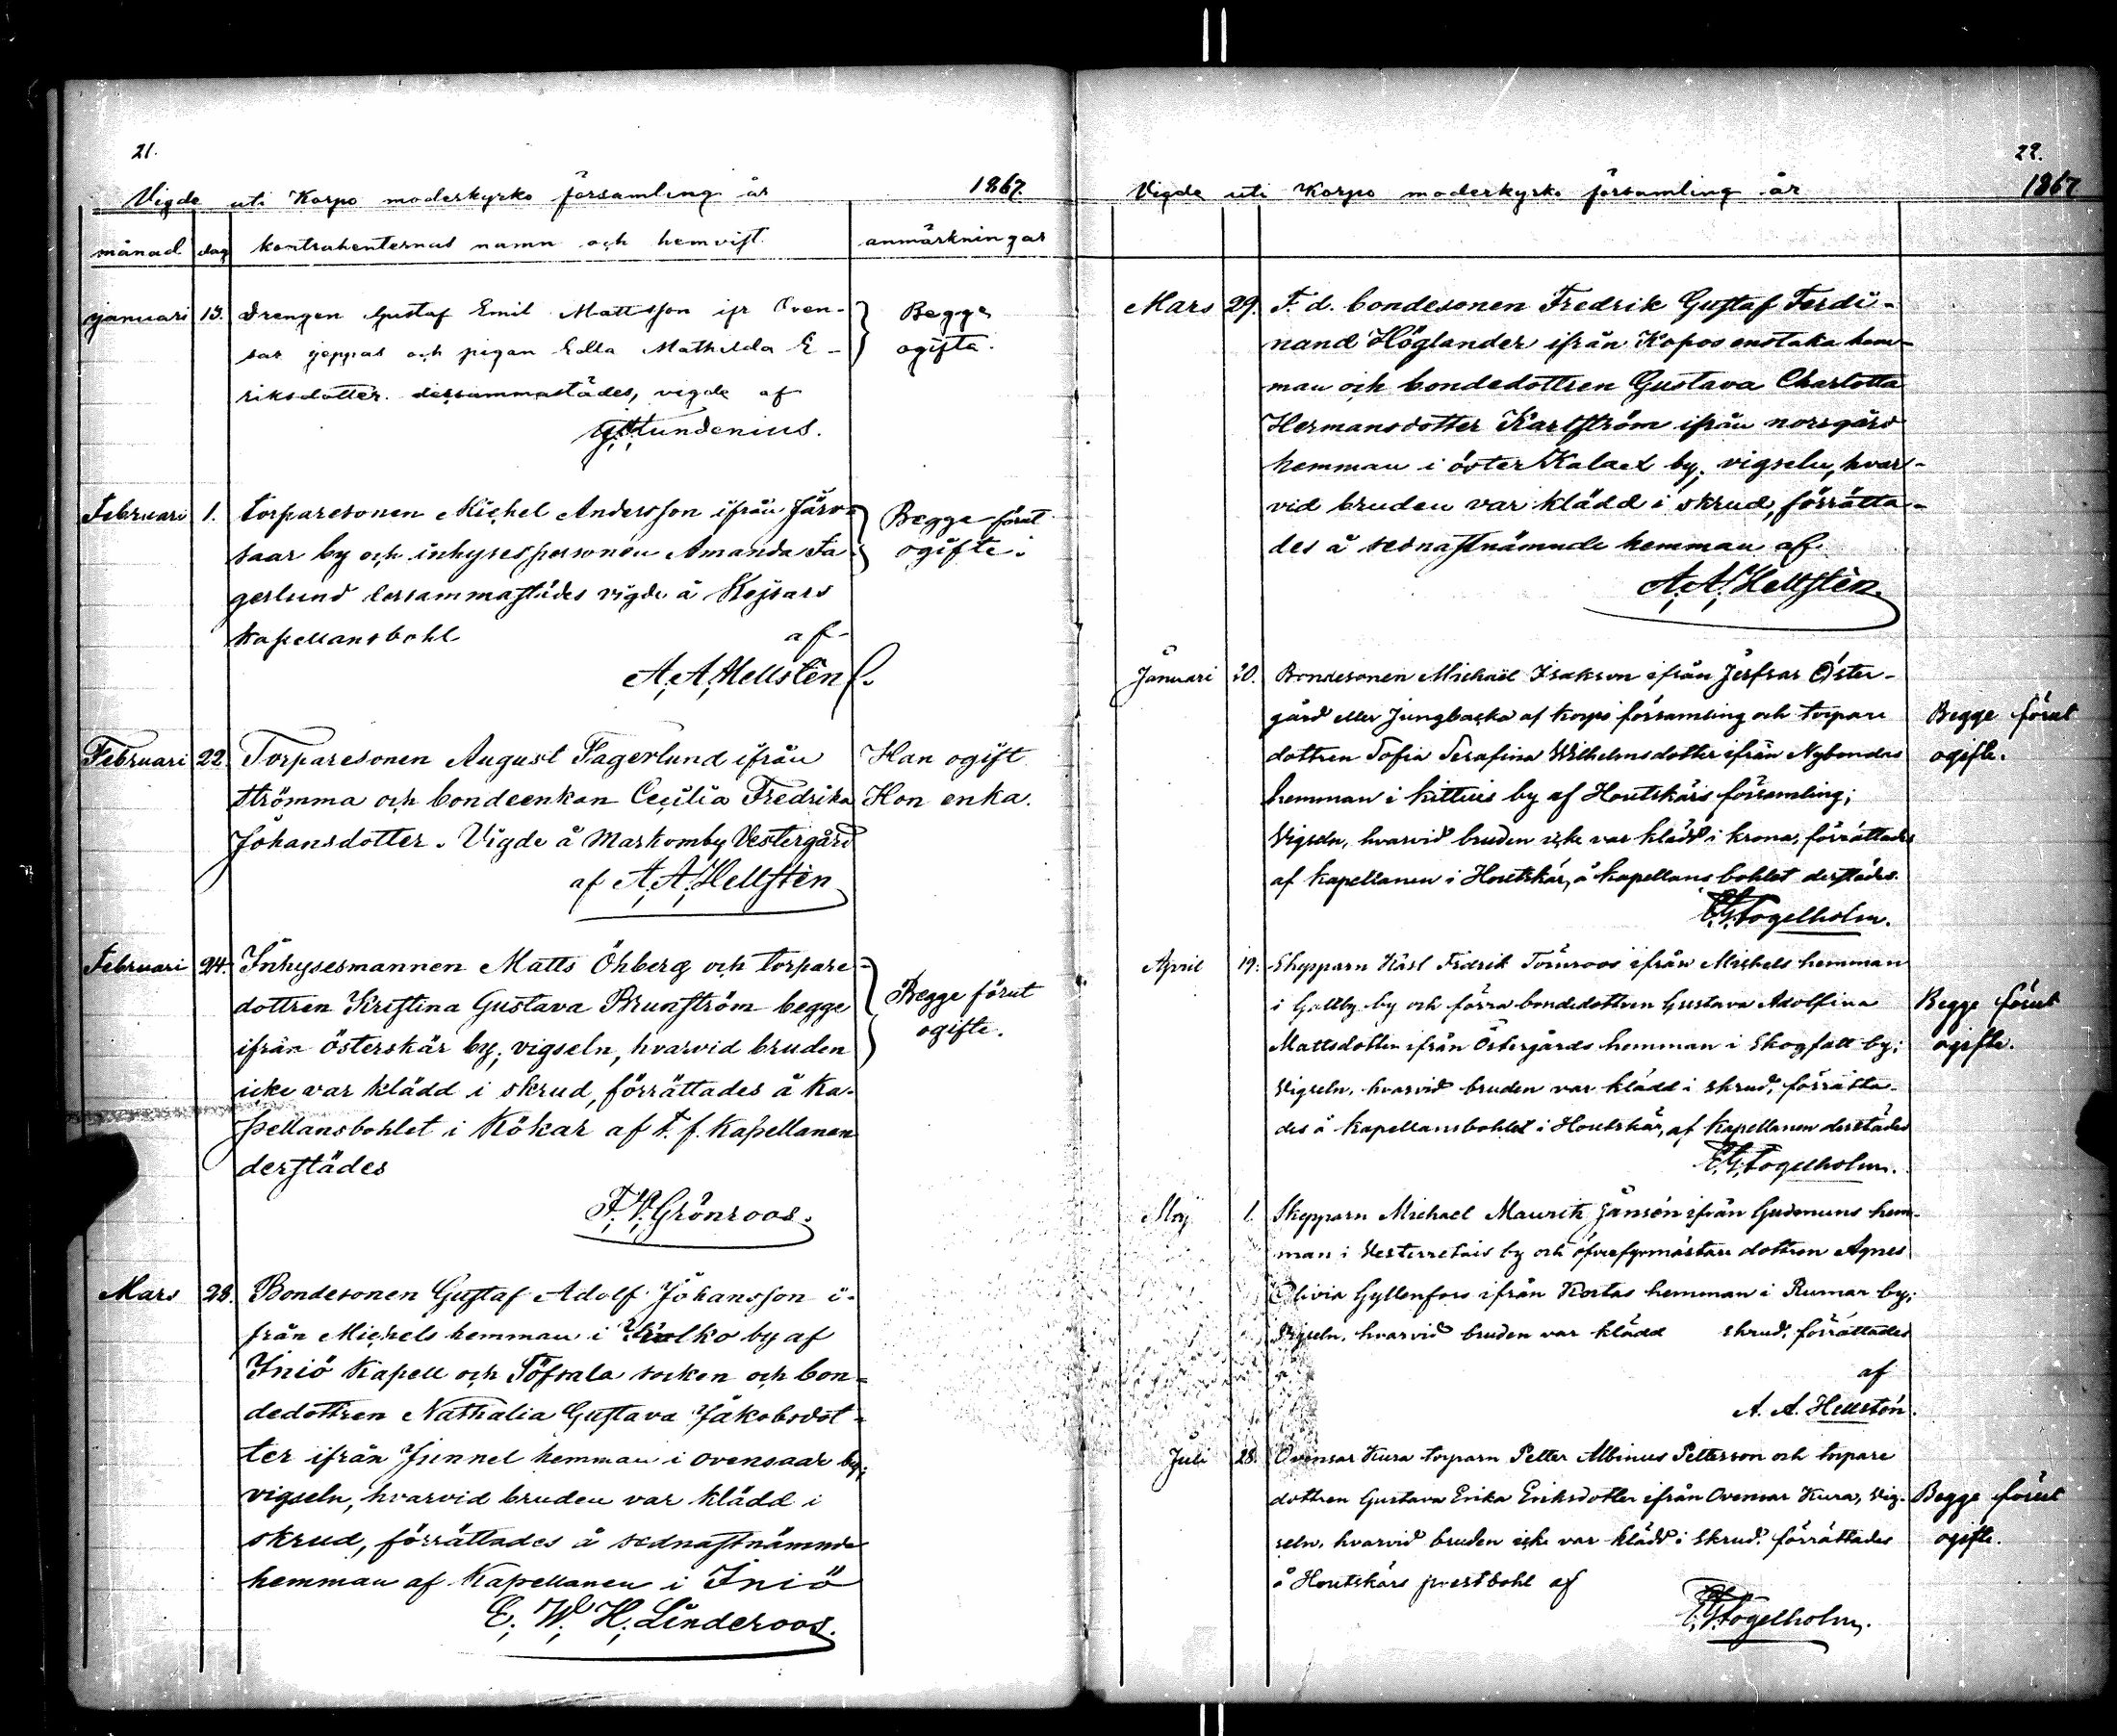 21.
Vigde uti Korpo moderkyrko församling år 1867.
månad dag kontrahenternas namn och hemvist. anmärkningar
januari 13. Drengen Gustaf Emil Mattsson ifr Oven- Begge
sar jeppas och pigan Edla Mathilda E- ogifta.
riksdotter dersammastädes, vigde af
Februari 1. torparesonen Michel Andersson ifrån Järv- Begge förut
saar by och inhysespersonen Amanda Fa ogifte.
gerlund dersammastädes vigde å Kojsars
Kapellansbohl af
A. A. Hellstén
Februari 22 Torparesonen August Fagerlund ifrån Han ogift
Strömma och bondeenkan Cecilia Fredrika Hon enka.
Johansdotter. Vigde å Markomby Vestergård
af A. A. Hellstén
Februari 24. Inhysesmannen Matts Öhberg och torpare-
dottren Kristina Gustava Brunström begge Begge förut
ifrån österskär by; vigseln, hvarvid bruden ogifte.
icke var klädd i skrud, förrättades å Ka-
pellansbohlet i Kökar af t. f. Kapellanen
derstädes
F. V. Grönroos.
Mars 28. Bondesonen Gustaf Adolf Johansson i-
från Michels hemman i Kolko by af
Iniö Kapell och Töfsala socken och bon-
dedottren Nathalia Gustava Jakobsdot-
ter ifrån Junnel hemman i ovensaar by;
vigseln, hvarvid bruden var klädd i
skrud, förrättades å sednastnämnde
hemman af Kapellanen i Iniö
E. W. H. Linderoos.
22.
Vigde uti Korpo moderkyrko församling år 1867
Mars 29. F. d. bondesonen Fredrik Gustaf Ferdi-
nand Höglander ifrån Kopos enstaka hem-
man och bondedottren Gustava Charlotta
Hermansdotter Karlström ifrån norrgård
hemman i öster Kalax by; vigseln, hvar-
vid bruden var klädd i skrud, förrätta-
des å sednastnämnde hemman af
A. A. Hellstén.
Januari 20. Bondesonen Michaël Isakson ifrån Jerfsar Öster-
gård eller Jungbacka af Korpo församling och torpare Begge förut
dottren Sofia Serafina Wilhelmsdotter ifrån Nybondas ogifte.
hemman i Kittuis by af Houtskärs församling;
Vigseln, hvarvid bruden icke var klädd i krona, förrättades
af Kapellanen i Houtskär, å Kapellans bohlet derstädes.
E. G. Fogelholm.
April 19. Skepparn Karl Fredrik Törnroos ifrån Michels hemman
i Galtby by och förra bondedottren Gustava Adolfina Begge förut
Mattsdotter ifrån Östergårds hemman i Skogfall by; ogifte.
Vigseln, hvarvid bruden var klädd i skrud, förrätta-
des å Kapellansbohlet i Houtskär, af Kapellanen derstädes
E. G. Fogelholm.
Maj 1. Skepparn Michael Mauritz Jansén ifrån Gudmuns hem-
man i Vesterretais by och öfverfyrmästare dottren Agnes
Olivia Gyllenfors ifrån Kortas hemman i Rumar by;
Vigseln, hvarvid bruden var klädd skrud, förrättades
af
A. A. Hellstén.
Juli 28. Ovensar Kura torparn Petter Albinus Petterson och torpare
dottren Gustava Erika Eriksdotter ifrån Ovensar Kura, Vig- Begge förut
seln, hvarvid bruden icke var klädd i skrud, förrättades ogifte.
å Houtskärs prestbohl af
E. G. Fogelholm.